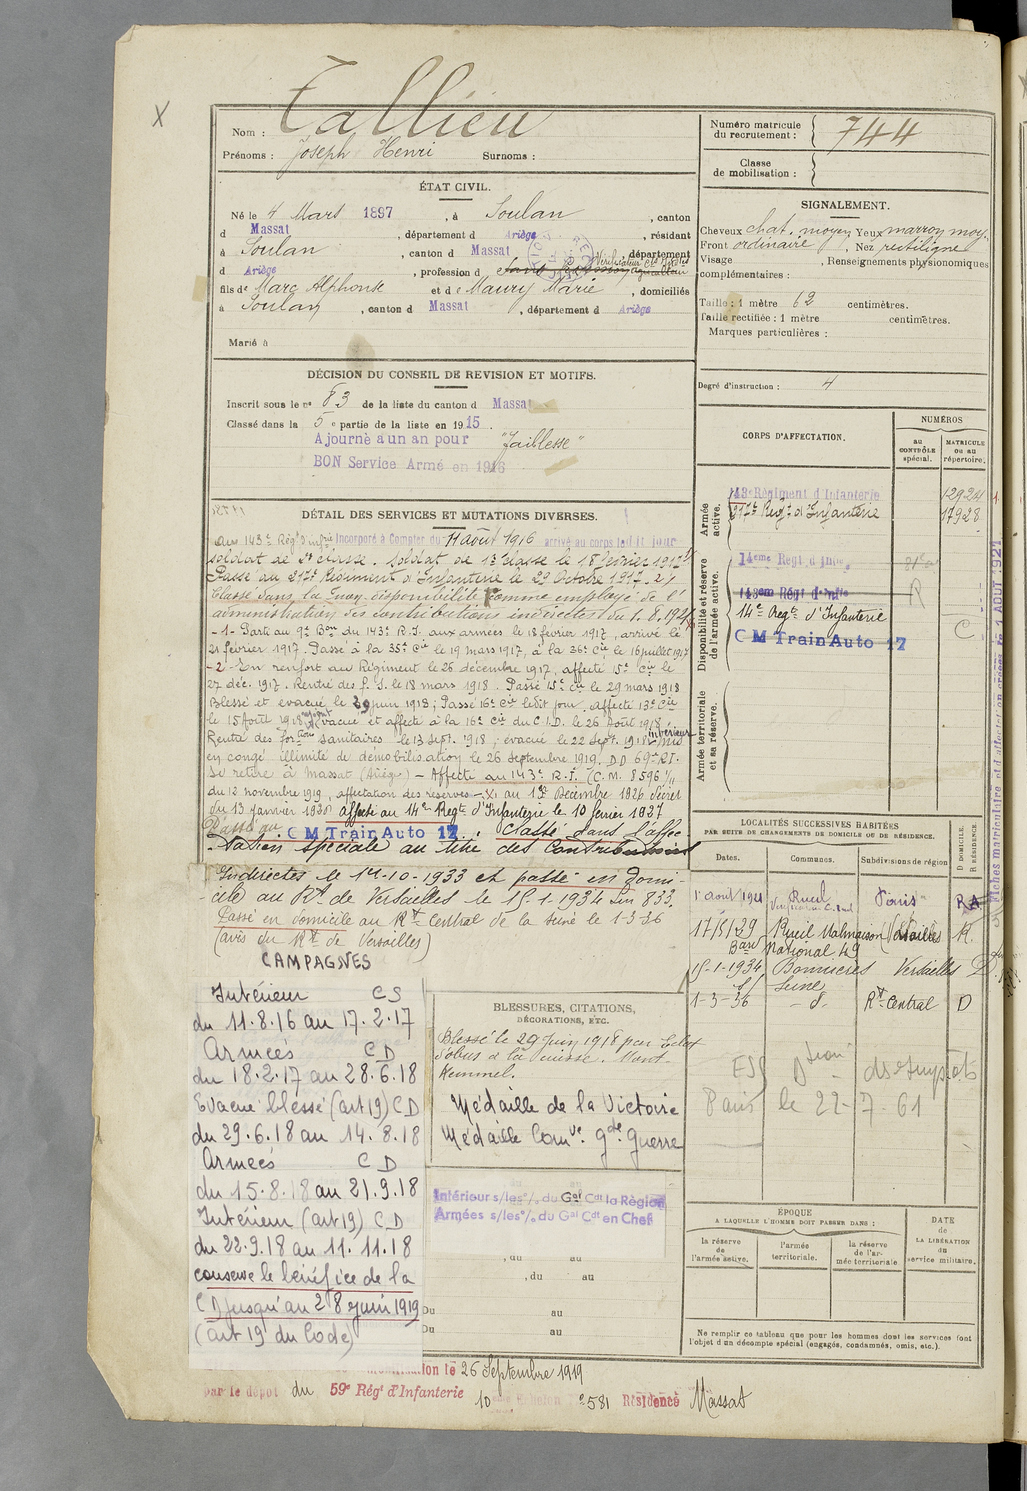 X
Nom : Tallieu
Prénoms : Joseph Henri Surnoms :
Numéro matricule du recrutement : 744
Classe de mobilisation :
ÉTAT CIVIL.
Né le 4 Mars 1897, à Soulan, canton
d Massat, département d Ariège, résidant
à Soulan, canton d Massat département
d Ariège, profession d
fils de Marc Alphonse et d e Maury Marie, domiciliés
à Soulan, canton d Massat, département d Ariège
Marié à
SIGNALEMENT.
Cheveux chat. moyen Yeux marron moy.
Front ordinaire. Nez rectiligne
Visage . Renseignements physionomiques
complémentaires :
Taille : 1 mètre 62 centimètres.
Taille rectifiée : 1 mètre centimètres.
Marques particulières :
Degré d'instruction : 4
DÉCISION DU CONSEIL DE REVISION ET MOTIFS.
Inscrit sous le n° 83 de la liste du canton d Massat
Classé dans la 5e partie de la liste en 1915.
Ajourné à un an pour "faiblesse"
BON Service Armé en 1916
CORPS D'AFFECTATION.
NUMÉROS
au CONTRÔLE spécial.
MATRICULE ou au répertoire.
Armée active.
143e Régiment d'Infanterie 12924
217e Regt d'Infanterie 17928
Disponibilité et réserve de l'armée active.
14eme Regt d'Inf.
143em Régt d'Inf
14e Regt d'Infanterie
C M Train Auto 17
Armée territoriale et sa réserve.
DÉTAIL DES SERVICES ET MUTATIONS DIVERSES.
au 143e Régt d'Infrie Incorporé à Compter du 11 août 1916 arrivé au corps ledit jour
soldat de 2e classe. Soldat de 1ere classe le 18 février 1917
Passé au 217e Régiment d'Infanterie le 29 Octobre 1917. 2/
Classé dans la disponibilité comme employé de l'
administration des contributions indirectes du 1.8.1921
-1- Parti au 9e Bon du 143e R.I. aux armées le 18 février 1917, arrivé le
21 février 1917. Passé à la 35e Cie le 19 mars 1917, à la 36e Cie le 16 juillet 1917
-2- En renfort au Régiment le 26 décembre 1917, affecté 15e Cie le
27 déc. 1917. Rentré des le 18 mars 1918. Passé 15e Cie le 29 mars 1918
Blessé et évacué le 29 juin 1918; Passé 16e Cie ledit jour. Affecté 13e Cie
le 15 Août 1918 évacué et affecté à la 16e Cie du C.I.D. le 26 Août 1918
Rentré des fortions sanitaires le 13 Sept. 1918; évacué le 22 Sept. 1918 intérieur mis
en congé illimité de démobilisation le 26 septembre 1919. D.D 69e R.I.
Se retire à Massat (Ariège) - Affecté au 143e R.I. (C.M. 8596 1/11
du 12 novembre 1919, affectation des réserves - X1 au 1er Décembre 1926. Décret
du 13 Janvier 1920 affecté au 14e Regt d'Infanterie le 10 février 1927
Passé au C M Train Auto 17. Classé dans l'affec-
tation spéciale au titre des Contributions
Indirectes le 14-10-1933 et passé en domi-
cile au Rt de Versailles le 15-1-1934 sur 833.
Passé en domicile au Rt Central de la Seine le 1-3-36
(avis du Rt de Versailles)
CAMPAGNES
Intérieur CS
du 11.8.16 au 17.2.17
Armées CD
du 18.2.17 au 28.6.18
Evacué blessé (art 19) CD
du 29.6.18 au 14.8.18
Armées CD
du 15.8.18 au 21.9.18
Intérieur (art 19) CD
du 22.9.18 au 11.11.18
conserve le bénéfice de la
CD jusqu'au 28 juin 1919
(art 19 du Code)
BLESSURES, CITATIONS,
DÉCORATIONS, ETC.
Blessé le 29 juin 1918 par Eclat
d'obus à la cuisse. Mont-
Kemmel.
Médaille de la Victoire
Médaille Comve gde Guerre
Intérieur s/les °/° du Gal Cdt la Région
Armées s/les °/° du Gal Cdt en Chef
, du au
, du au
Du au
Du au
LOCALITÉS SUCCESSIVES HABITÉES
PAR SUITE DE CHANGEMENTS DE DOMICILE OU DE RÉSIDENCE.
Dates. Communes. Subdivisions de région
D DOMICILE. R RÉSIDENCE.
1er août 1921 Rueil Paris R
17/5/29 Rueil Malmaison Versailles R.
Bard National 49
15-1-1934 Bonnières Versailles D
s/ Seine
1-3-36 - d°- Rt Central D
ESS Dtion des Impôts
Paris le 22-7-61
ÉPOQUE
A LAQUELLE L'HOMME DOIT PASSER DANS :
la réserve de l'armée active.
l'armée territoriale.
la réserve de l'armée territoriale
DATE de LA LIBÉRATION du service militaire.
Ne remplir ce tableau que pour les hommes dont les services font
l'objet d'un décompte spécial (engagés, condamnés, omis, etc.).
le 26 Septembre 1919
par le dépôt du 59e Régt d'Infanterie
10 Echelon n° 581 Résidence Massat